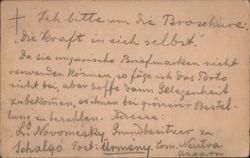 Ich bitte um die Broschüre
"Die Kraft in sich selbst".
Da sie ungarische Briefmarken nicht
verwenden können, so füge ich das Porto
nicht bei, aber hoffe dann Gelegenheit
zubekommen, es Ihnen bei grösserer Bestel-
lung zu bezahlen. Adresse:
L. Novomesky, Grundbesitzer zu
Schalgo Post: Ürmeny. Com. Neutra
Ungarn